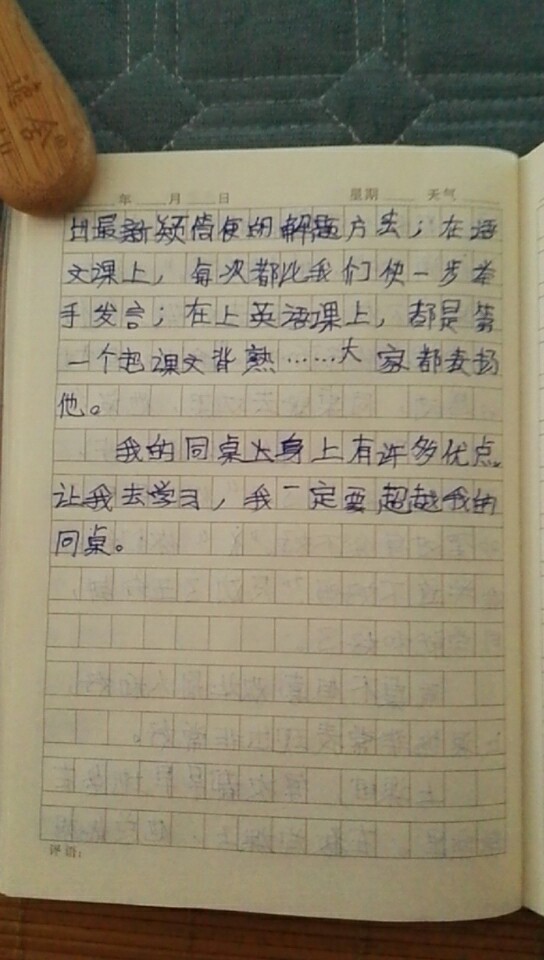 年 月 日 星期 天气
出最新颖简便的解题方法；在语
文课上，每次都比我们快一步举
手发言；在上英语课上，都是第
一个把课文背熟……大家都表扬
他。
我的同桌火身上有许多优点，
让我去学习，我一定要超越我的
同桌。
评语：